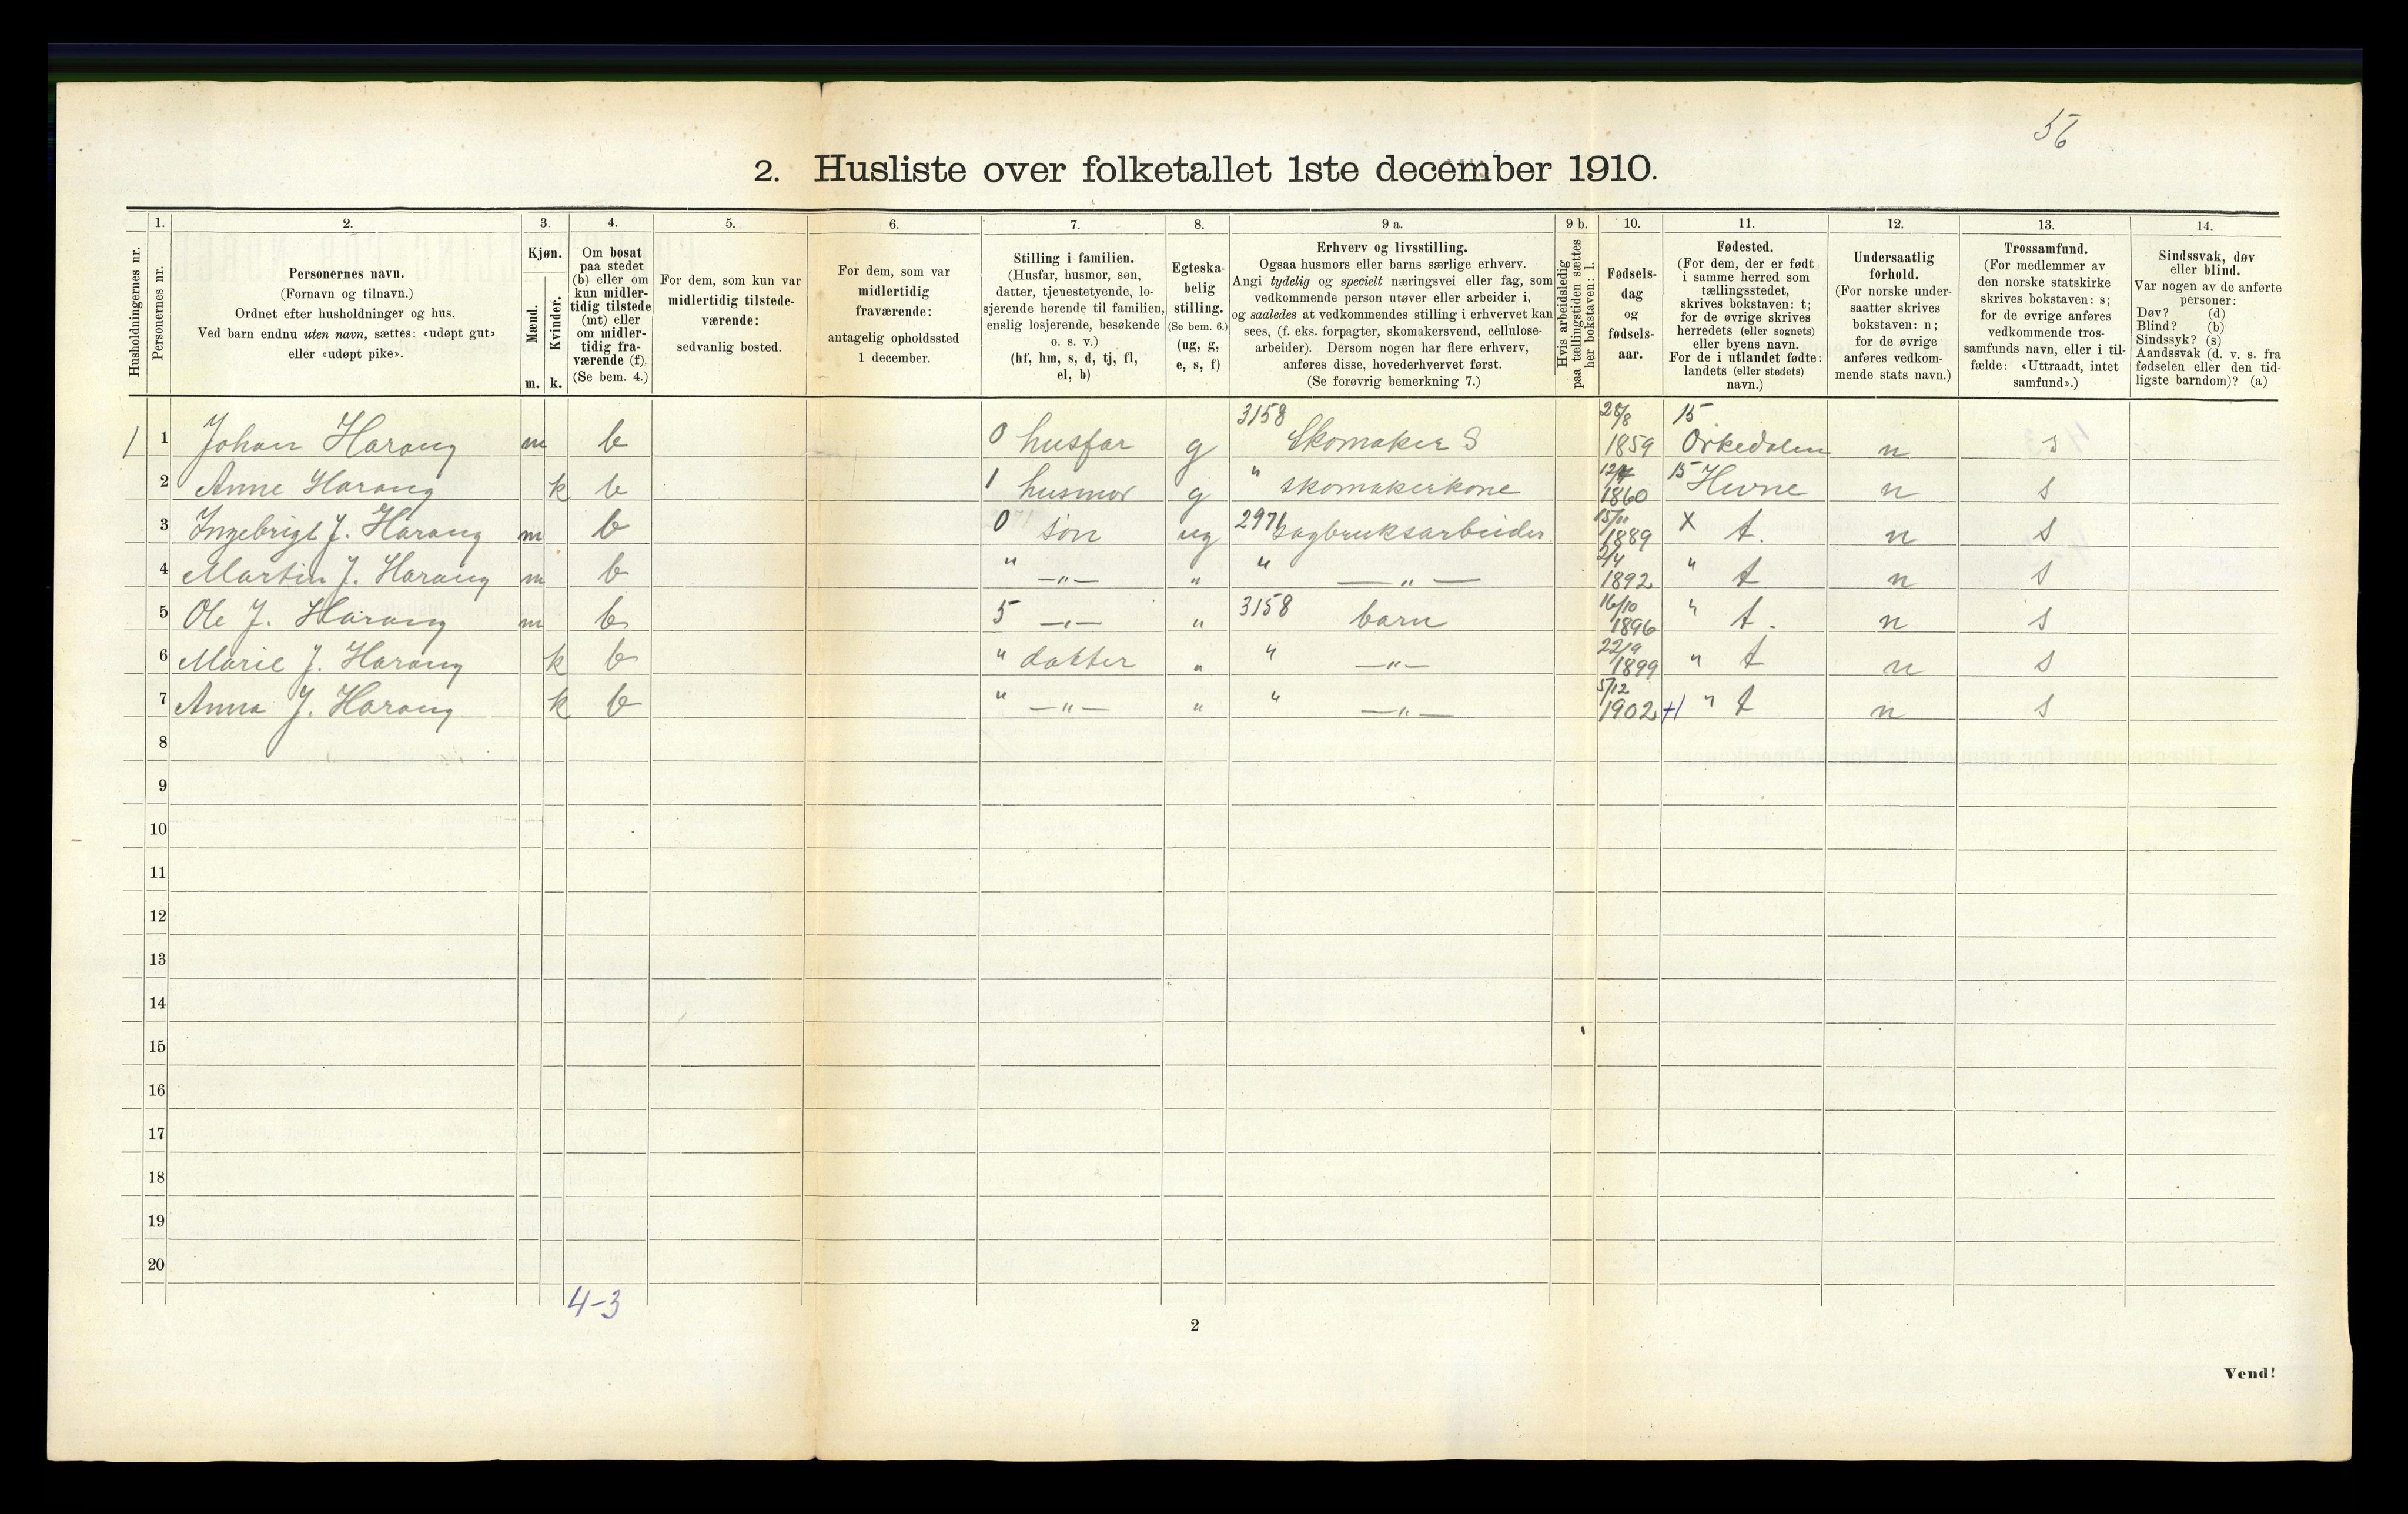 56
2. Husliste over folketallet 1ste december 1910.
Husholdningernes nr.
1. Personernes nr.
2. Personernes navn. (Fornavn og tilnavn.) Ordnet efter husholdninger og hus. Ved barn endnu uten navn, sættes: «udøpt gut» eller «udøpt pike».
3. Kjøn. Mænd. m. Kvinder. k.
4. Om bosat paa stedet (b) eller om kun midlertidig tilstede (mt) eller om midlertidig fraværende (f). (Se bem. 4.)
5. For dem, som kun var midlertidig tilstedeværende: sedvanlig bosted.
6. For dem, som var midlertidig fraværende: antagelig opholdssted 1 december.
7. Stilling i familien. (Husfar, husmor, søn, datter, tjenestetyende, losjerende hørende til familien, enslig losjerende, besøkende o. s. v.) (hf, hm, s, d, tj, fl, el, b)
8. Egteskabelig stilling. (Se bem. 6.) (ug, g, e, s, f)
9 a. Erhverv og livsstilling. Ogsaa husmors eller barns særlige erhverv. Angi tydelig og specielt næringsvei eller fag, som vedkommende person utøver eller arbeider i, og saaledes at vedkommendes stilling i erhvervet kan sees, (f. eks. forpagter, skomakersvend, cellulosearbeider). Dersom nogen har flere erhverv, anføres disse, hovederhvervet først. (Se forøvrig bemerkning 7.)
9 b. Hvis arbeidsledig paa tællingstiden sættes her bokstaven: l.
10. Fødselsdag og fødselsaar.
11. Fødested. (For dem, der er født i samme herred som tællingsstedet, skrives bokstaven: t; for de øvrige skrives herredets (eller sognets) eller byens navn. For de i utlandet fødte: landets (eller stedets) navn.)
12. Undersaatlig forhold. (For norske undersaatter skrives bokstaven: n; for de øvrige anføres vedkommende stats navn.)
13. Trossamfund. (For medlemmer av den norske statskirke skrives bokstaven: s; for de øvrige anføres vedkommende trossamfunds navn, eller i tilfælde: «Uttraadt, intet samfund».)
14. Sindssvak, døv eller blind. Var nogen av de anførte personer: Døv? (d) Blind? (b) Sindssyk? (s) Aandssvak (d. v. s. fra fødselen eller den tidligste barndom)? (a)
1 1 Johan Harang m b 0 husfar g 3158 Skomaker S 28/8 1859 15 Orkedalen n s
2 Anne Harang k b 1 husmor g " skomakerkone 1860 15 Hevne n s
3 Ingebrigt J. Harang m b 0 søn ug 2971 sagbruksarbeider 15/11 1889 x t. n s
4 Martin J. Harang m b " —"— " " —"— 2/4 1892 " t n s
5 Ole J. Harang m b 5 —"— " 3158 barn 16/10 1896 " t. n s
6 Marie J. Harang k b " datter " " —"— 22/9 1899 " t n s
7 Anna J. Harang k b " —"— " " —"— 5/12 1902 +1 " t n s
8
9
10
11
12
13
14
15
16
17
18
19
20
4-3
2
Vend!